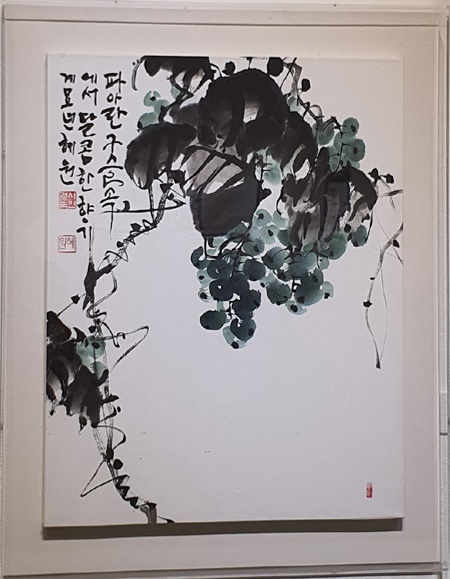 파아란 구슬속
에서 달콤한 향기
계묘년 혜원